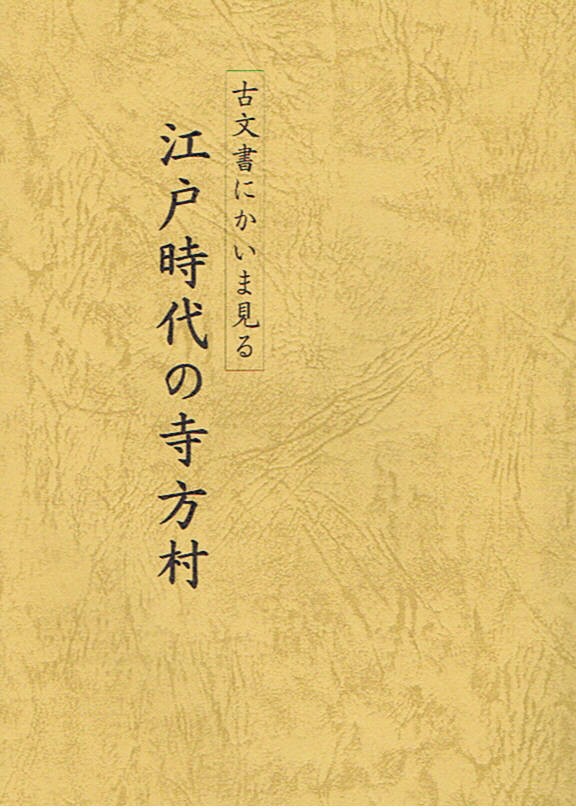 古文書にかいま見る
江戸時代の寺方村